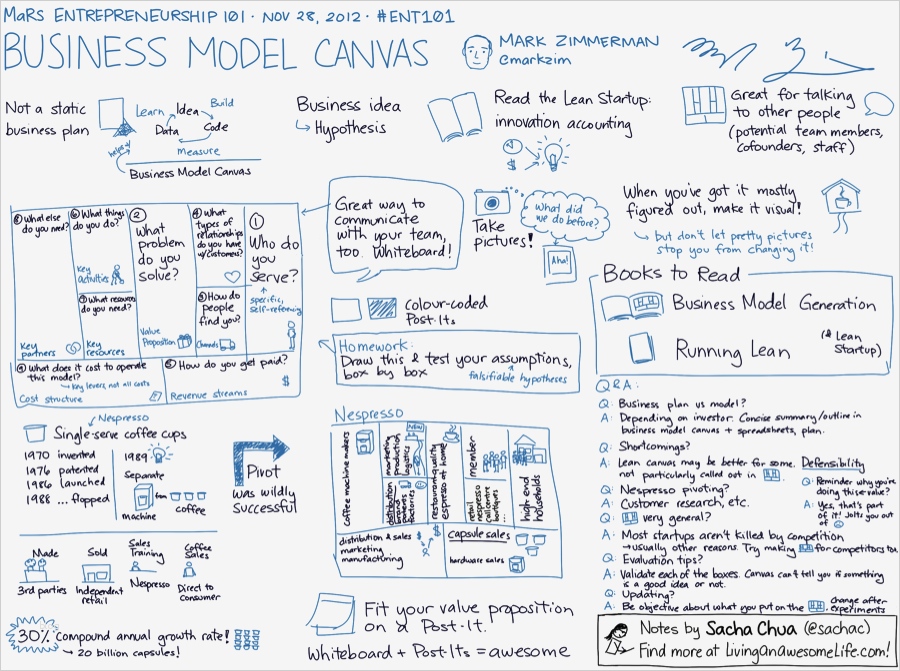 MaRS ENTREPRENEURSHIP 101 · NOV 28, 2012 · #ENT101
BUSINESS MODEL CANVAS
MARK ZIMMERMAN
@markzim
Not a static
business plan
Learn
Idea
Build
Data
Code
Measure
helps
Business Model Canvas
Business idea
Hypothesis
Read the Lean Startup:
innovation accounting
$
Great for talking
to other people
(potential team members,
cofounders, staff)
⑧ What else
do you need?
Key
partners
⑥ What things
do you do?
Key
activities
⑦ What resources
do you need?
Key
resources
②
What
problem
do you
solve?
Value
Proposition
④ What
types of
relationships
do you have
w/customers?
③ How do
people
find you?
Channels
①
Who do
you
serve?
specific,
self-referencing
⑨ What does it cost to operate
this model?
Key levers, not all costs
Cost structure
⑤ How do you get paid?
$
Revenue streams
Great way to
communicate
with your team,
too. Whiteboard!
Take
pictures!
What did
we do before?
Aha!
When you've got it mostly
figured out, make it visual!
but don't let pretty pictures
stop you from changing it!
colour-coded
Post-Its
Homework:
Draw this & test your assumptions,
box by box
falsifiable hypotheses
Books to Read
Business Model Generation
Running Lean
(& Lean
Startup)
Nespresso
Single-serve coffee cups
1970 invented
1976 patented
1986 launched
1988 ... flopped
1989
Separate
machine
for
coffee
Pivot
was wildly
successful
Made
3rd parties
Sold
Independent
retail
Sales
Training
Nespresso
Coffee
Sales
Direct to
consumer
30% compound annual growth rate!
20 billion capsules!
Nespresso
coffee machine makers
marketing
production
logistics
distribution
brand
patents
factories
NEW
restaurant-quality
espresso at home
member
retail
nespresso
call centre
boutiques
...
high end
households
distribution & sales
marketing
manufacturing
$
capsule sales
hardware sales
Fit your value proposition
on a Post-It.
Whiteboard + Post-Its = awesome
Q&A:
Q: Business plan vs model?
A: Depending on investor. Concise summary/outline in
business model canvas + spreadsheets, plan.
Q: Shortcomings?
A: Lean canvas may be better for some. Defensibility
not particularly called out in
Q: Reminder why you're
doing this = value?
A: Yes, that's part
of it! Jolts you out
of
Q: Nespresso pivoting?
A: Customer research, etc.
Q: very general?
A: Most startups aren't killed by competition
usually other reasons. Try making for competitors too
Q: Evaluation tips?
A: Validate each of the boxes. Canvas can't tell you if something
is a good idea or not.
Q: Updating?
A: Be objective about what you put on the
change after
experiments
Notes by Sacha Chua (@sachac)
Find more at LivingAnAwesomeLife.com!